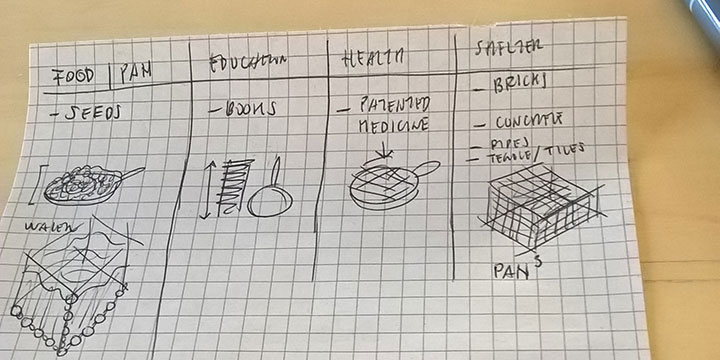 FOOD | PAN
EDUCATION
HEALTH
SHELTER
- SEEDS
- BOOKS
- PATENTED
MEDICINE
- BRICKS
- CONCRETE
- PIPES
- / TILES
WATER
PANS